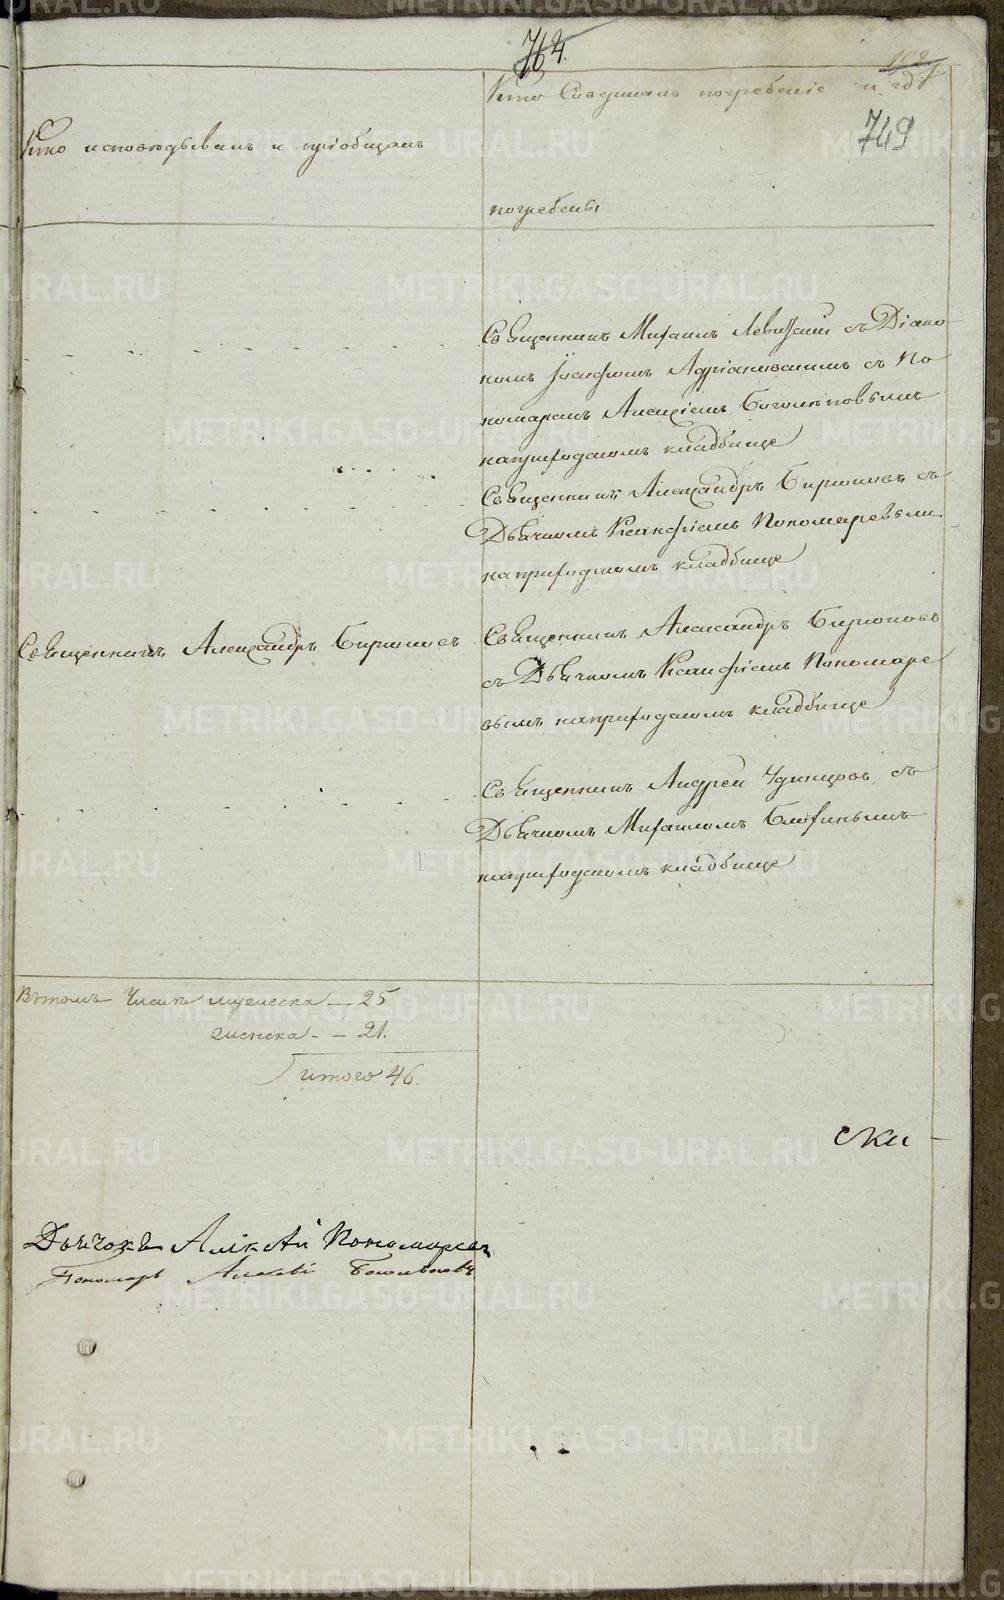 764.
749
Кто исповѣдывалъ и пріобщалъ
Кто Совершалъ погребеніе и гдѣ
погребены
Священникъ Михаилъ Левицкій съ Діако-
номъ Адріановскимъ съ По
номаремъ Алексіемъ
наприходскомъ кладбище
Священникъ Александръ Бирюковъ съ
Дьячкомъ Ксанфіемъ Пономаревымъ
наприходскомъ кладбище
Священникъ Александръ Бирюковъ
Священникъ Александръ Бирюковъ
съ Дьячкомъ Ксанфіемъ Пономаре
вымъ наприходскомъ кладбище
Священникъ Андрей Удинцовъ съ
Дьячкомъ Михаиломъ
наприходскомъ кладбище
Втомъ Числѣ мужеска — 25
женска - - 21.
итого 46.
ски
Дьячокъ Алексѣй Пономаревъ
Пономарь Алексѣй
METRIKI.GASO-URAL.RU